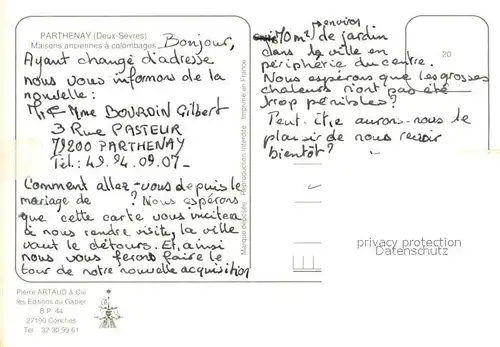 PARTHENAY (Deux-Sèvres)
Maisons anciennes à colombages
Bonjour,
Ayant changé d'adresse
nous vous informons de la
nouvelle:
Mr & Mme BOURDIN Gilbert
3 Rue PASTEUR
79200 PARTHENAY
Tél.: 49.94.09.07-
Comment allez-vous depuis le
mariage de ? Nous espérons
que cette carte vous incitera
à nous rendre visite, la ville
vaut le détours. Et, ainsi
nous vous ferons faire le
tour de notre nouvelle acquisition
Pierre ARTAUD & Cie
les Editions du Gabier
B.P. 44
27190 Conches
Tél. 32.30.99.61
Marque déposée Reproduction Interdite Imprimé en France
environ
70 m² de jardin
dans la ville en
périphérie du centre.
Nous espérons que les grosses
chaleurs n'ont pas été
trop pénibles?
Peut-être aurons-nous le
plaisir de nous revoir
bientôt?
20
privacy protection
Datenschutz